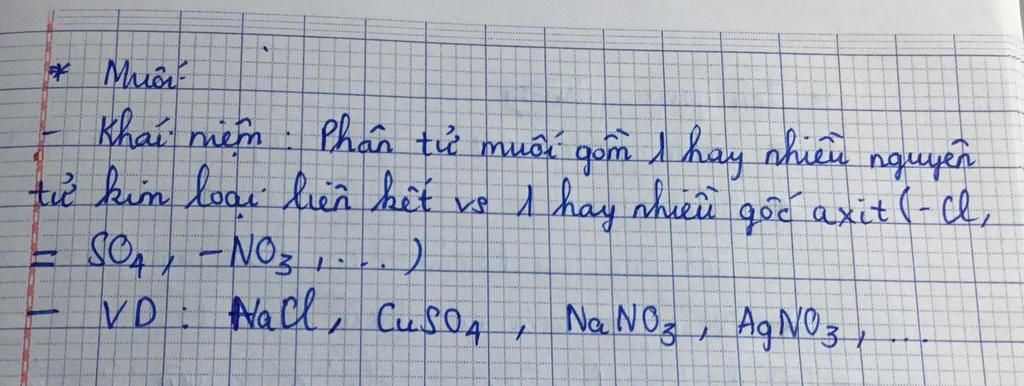 * Muối
- Khái niệm : Phân tử muối gồm 1 hay nhiều nguyên
tử kim loại liên kết vs 1 hay nhiều gốc axit (-Cl,
= SO₄, -NO₃, ....)
- VD : NaCl, CuSO₄, NaNO₃, AgNO₃, ...